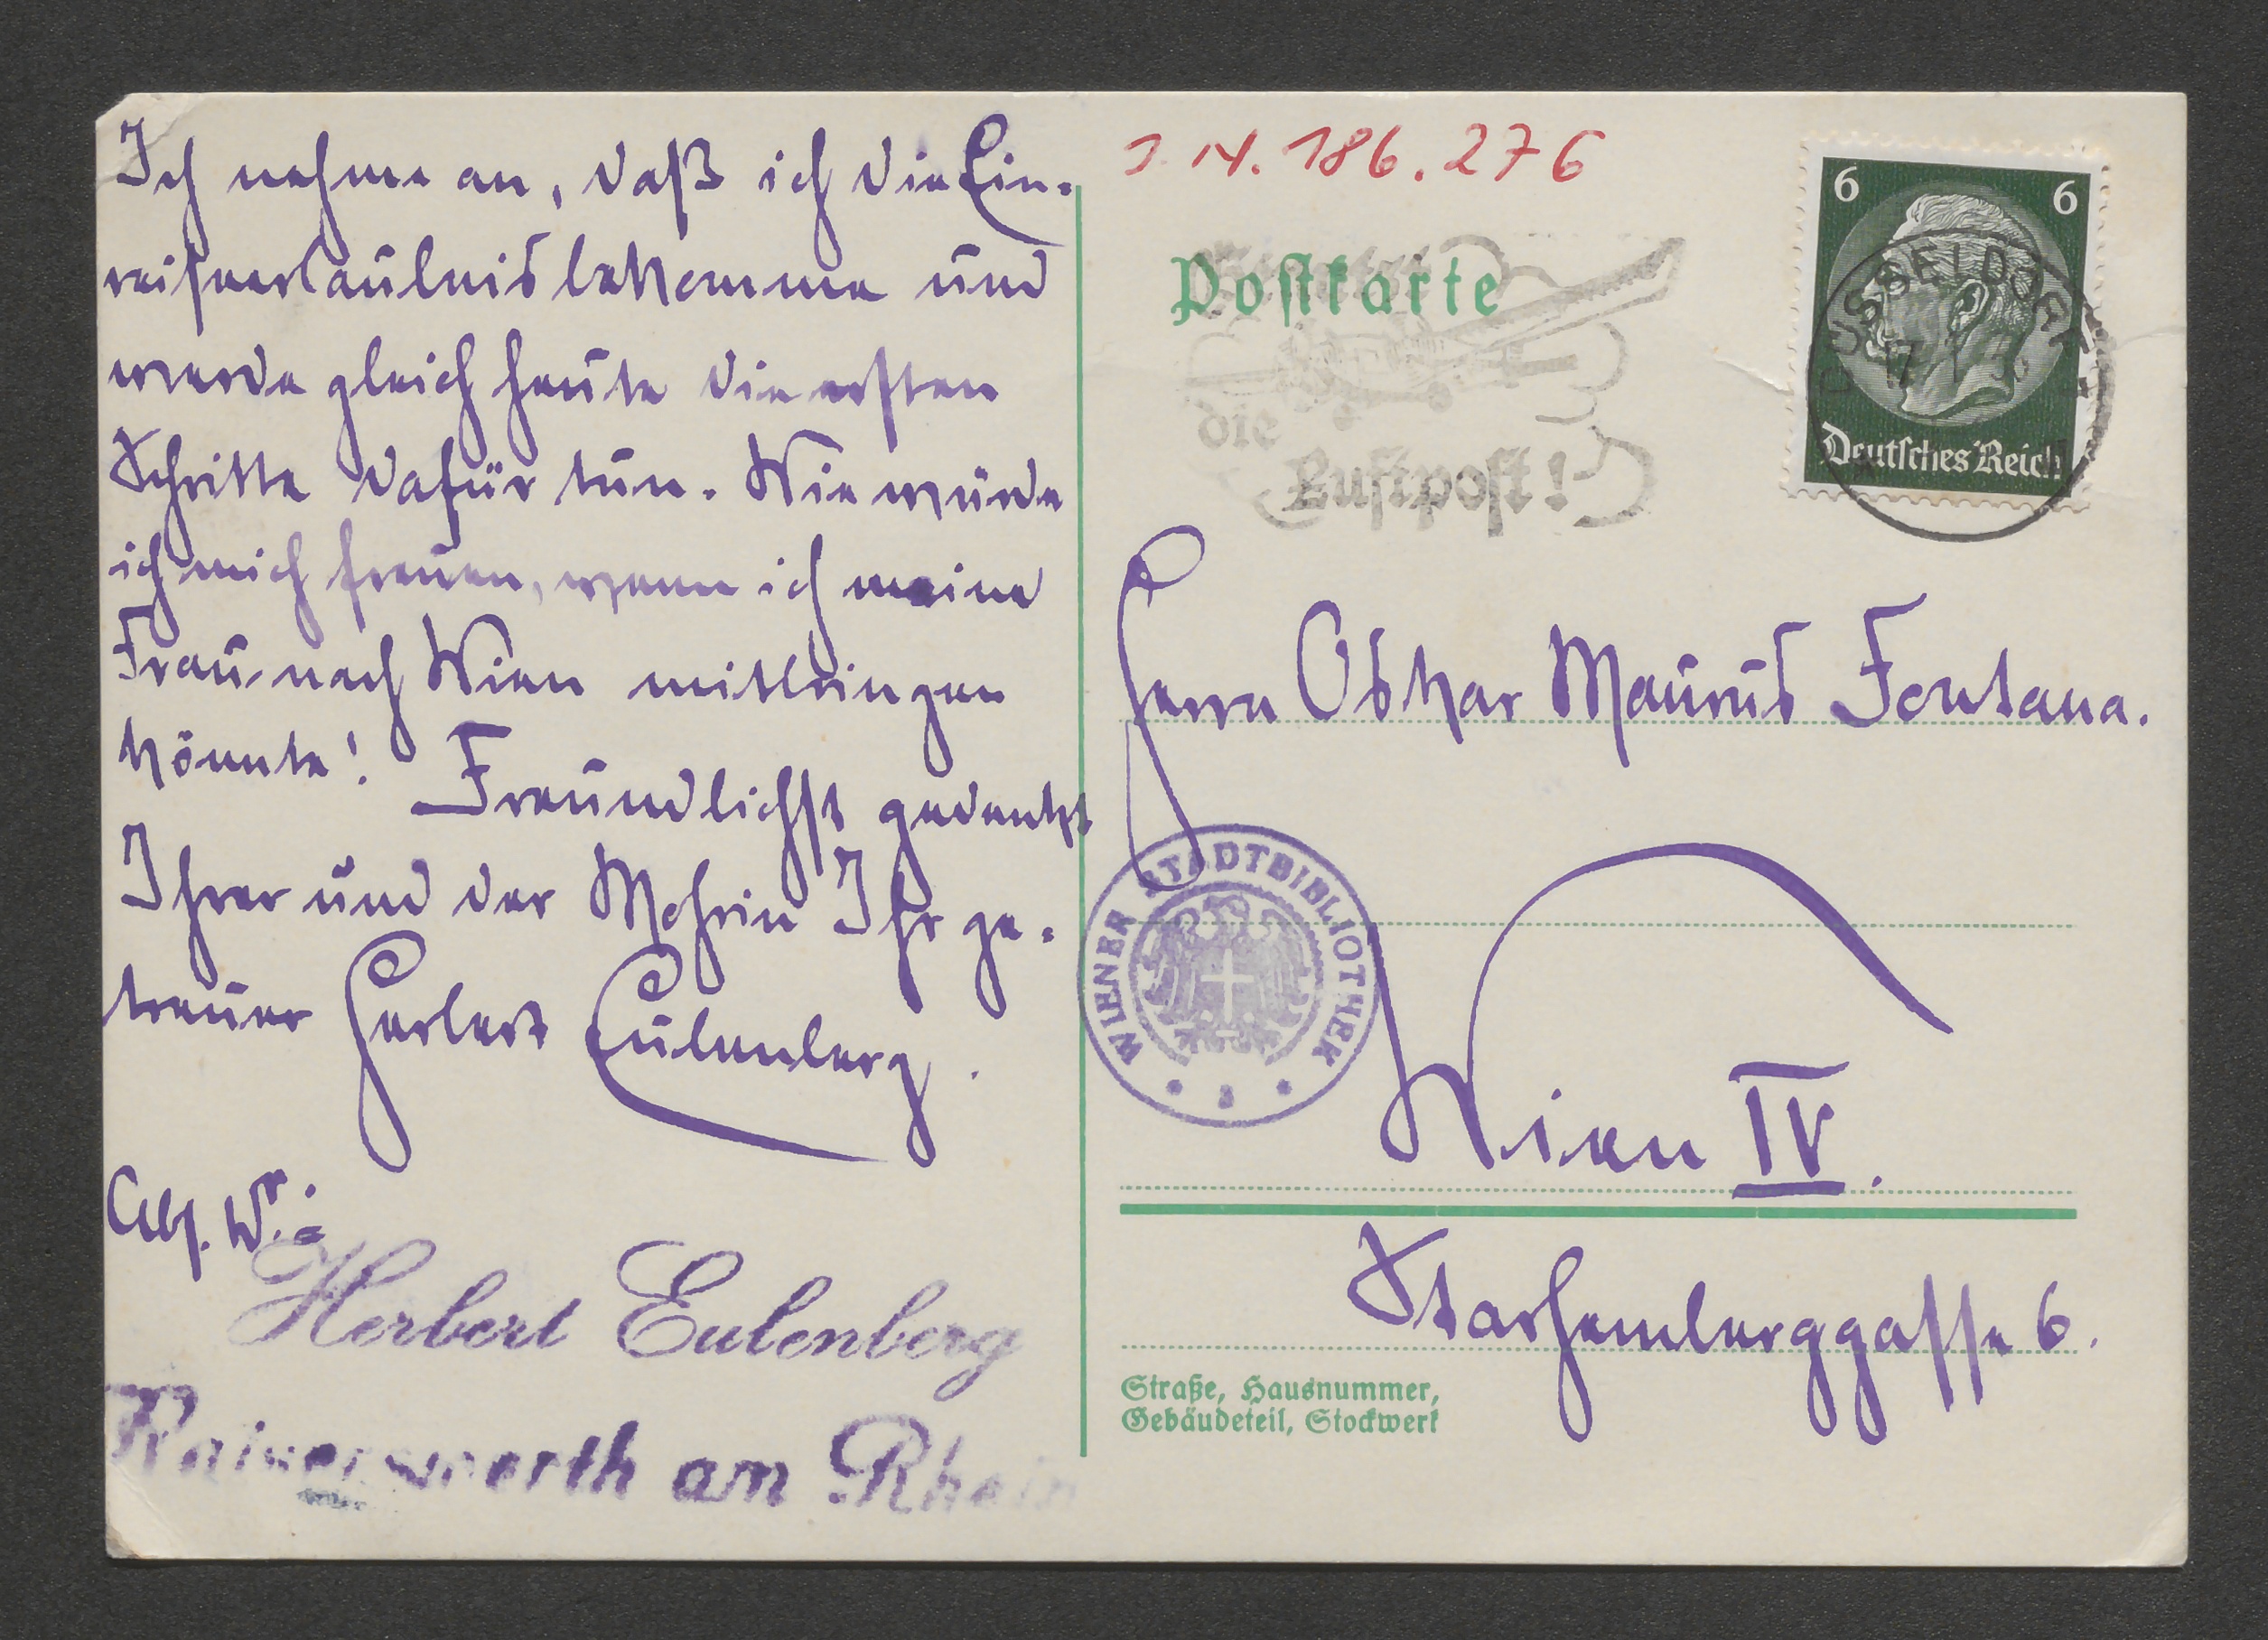 Ich nehme an, daß ich die Ein-
reiseerlaubnis bekomme und
werde gleich heute die ersten
Schritte dafür tun. Wie würde
ich mich freuen, wenn ich meine
Frau nach Wien mitbringen
könnte! Freundlichst gedenkt
Ihrer und der Mohrin Ihr ge-
treuer Herbert Eulenberg.
Abs. Wr.:
Herbert Eulenberg
Kaiserswerth am Rhein
I. N. 186.276
Postkarte
die
Luftpost!
6 6
DÜSSELDORF
17
Deutsches Reich
Herrn Oskar Maurus Fontana.
WIENER STADTBIBLIOTHEK
Wien IV.
Starhemberggasse 6.
Straße, Hausnummer,
Gebäudeteil, Stockwerk